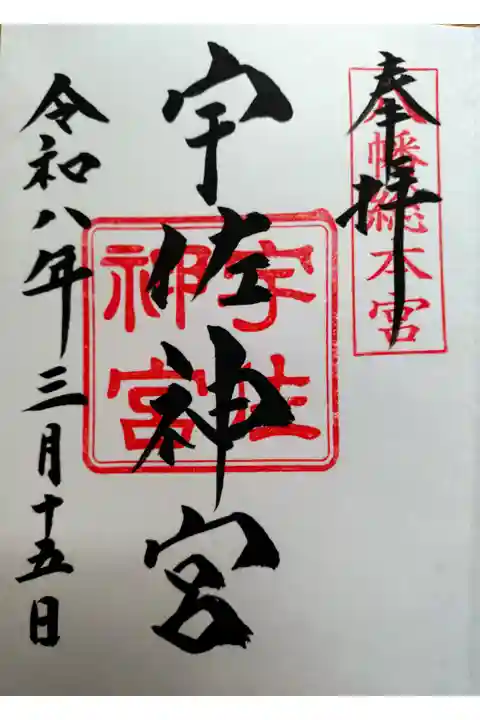 奉拝
八幡総本宮
宇佐神宮
宇佐神宮
令和八年三月十五日